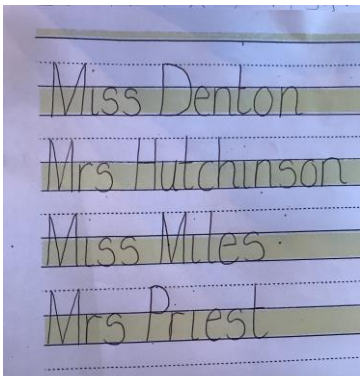 Miss Denton
Mrs Hutchinson
Miss Miles
Mrs Priest